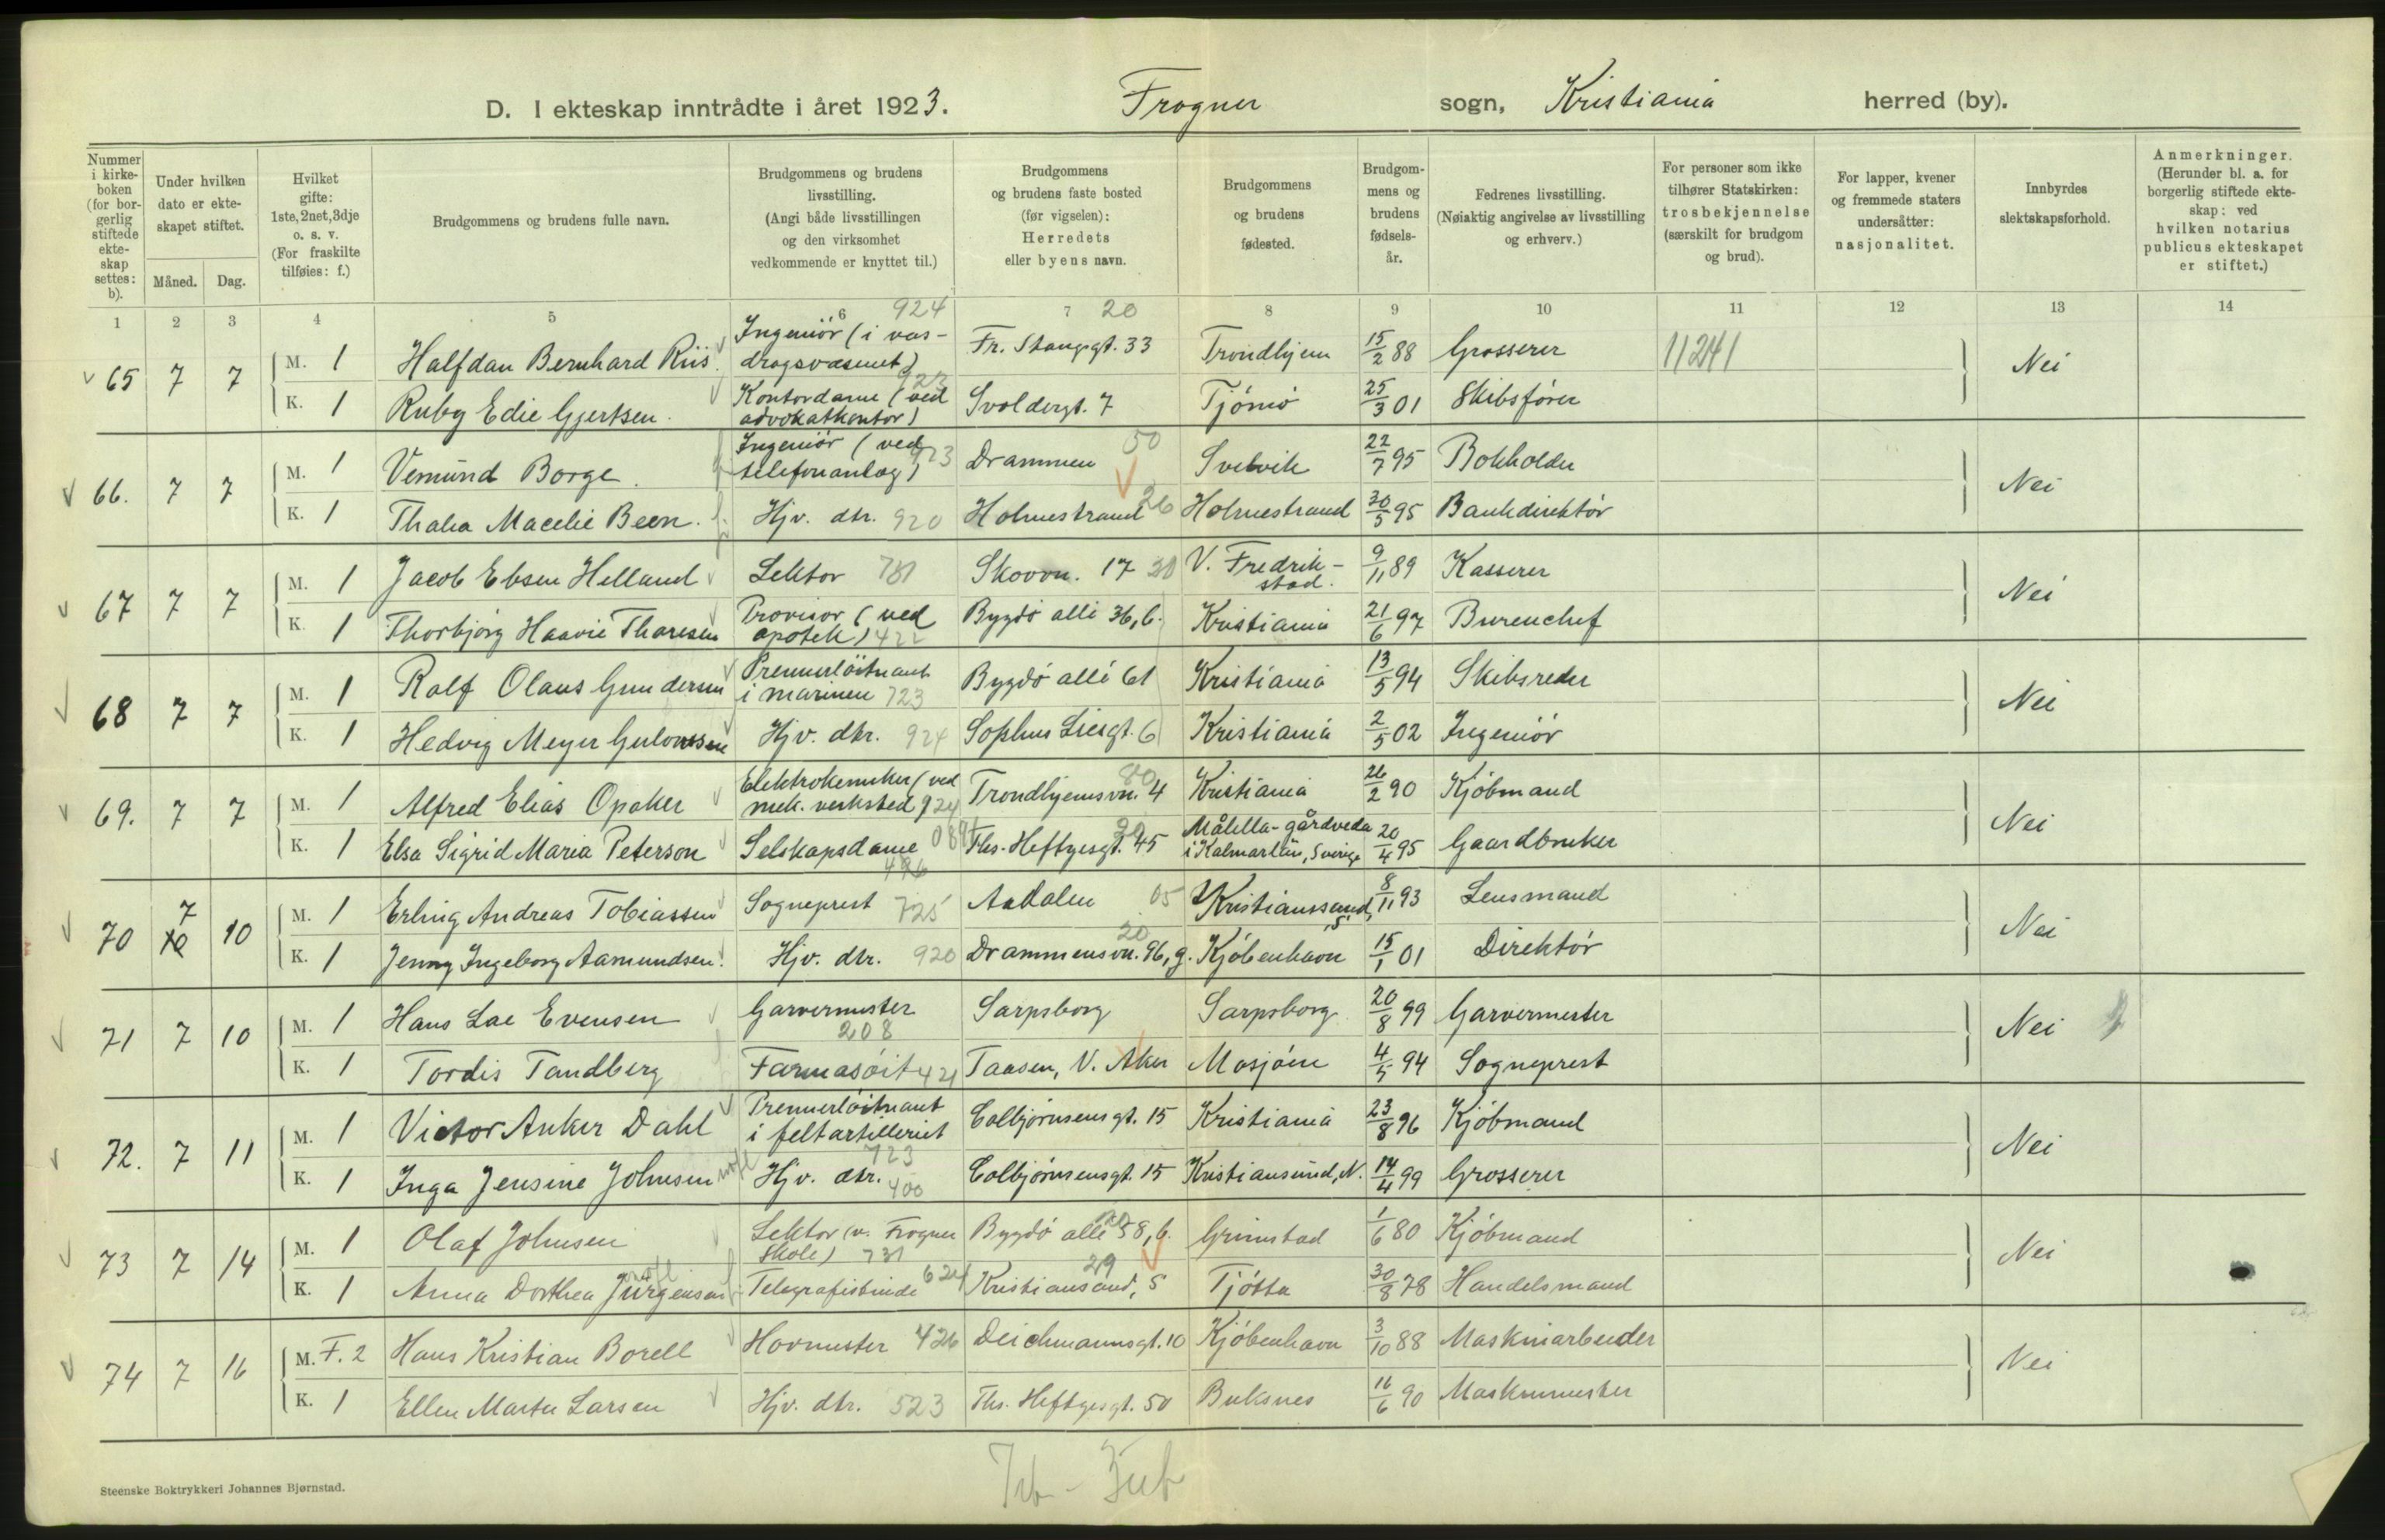 D. I ekteskap inntrådte i året 1923. Frogner sogn, Kristiania herred (by).
Nummer i kirkeboken (for borgerlig stiftede ekteskap settes: b).
Under hvilken dato er ekteskapet stiftet.
Måned. Dag.
Hvilket gifte: 1ste, 2net, 3dje o. s. v. (For fraskilte tilføies: f.)
Brudgommens og brudens fulle navn.
Brudgommens og brudens livsstilling. (Angi både livsstillingen og den virksomhet vedkommende er knyttet til.)
Brudgommens og brudens faste bosted (før vigselen): Herredets eller byens navn.
Brudgommens og brudens fødested.
Brudgommens og brudens fødselsår.
Fedrenes livsstilling. (Nøiaktig angivelse av livsstilling og erhverv.)
For personer som ikke tilhører Statskirken: trosbekjennelse (særskilt for brudgom og brud).
For lapper, kvener og fremmede staters undersåtter: nasjonalitet.
Innbyrdes slektskapsforhold.
Anmerkninger. (Herunder bl. a. for borgerlig stiftede ekteskap: ved hvilken notarius publicus ekteskapet er stiftet.)
1 2 3 4 5 6 924 7 20 8 9 10 11 12 13 14
65 7 7 M. 1 Halfdan Bernhard Riis Ingeniör (i vas-dragsvæsenet) Fr. Stangsgt. 33 Trondhjem 15/2 88 Grosserer 11241 Nei
K. 1 Ruby Edie Gjertsen. Kontordame (ved advokatkontor) 923 Svoldergt. 7 Tjömö 25/3 01 Skibsförer
66. 7 7 M. 1 Vemund Borge. Ingeniör (ved telefonanlæg) 923 Drammen 50 Svelvik 22/7 95 Bokholder Nei
K. 1 Thalia Macelie Been. Hjv. dtr. 920 Holmestrand 26 Holmestrand 30/5 95 Bankdirektör
67 7 7 M. 1 Jacob Ebsen Helland Lektor 731 Skovvn. 17 20 V. Fredrik-stad. 9/11 89 Kasserer Nei
K. 1 Thorbjörg Haavie Thoresen Provisor (ved apotek) 422 Bygdö allé 36, b. Kristiania 21/6 97 Bureuchef
68 7 7 M. 1 Rolf Olaus Gundersen Premierlöitnant i marinen 723 Bygdö allé 61 Kristiania 13/5 94 Skibsreder Nei
K. 1 Hedvig Meyer Gulowssen Hjv. dtr. 924 Sophus Liesgt. 6 Kristiania 2/5 02 Ingeniör
69. 7 7 M. 1 Alfred Elias Opaker Elektrokemiker (ved mek. verksted) 924 Trondhjemsvn. 4 80 Kristiania 26/2 90 Kjöbmand Nei
K. 1 Elsa Sigrid Maria Peterson Selskapsdame 089 Ths. Heftyesgt. 45 20 Målilla-gårdveda i Kalmarlän, Sverige 20/4 95 Gaardbruker
70 7 10 M. 1 Erling Andreas Tobiassen Sogneprest 725 496 Aadalen 05 Kristianssand, S. 8/11 93 Lensmand Nei
K. 1 Jenny Ingeborg Aamundsen. Hjv. dtr. 920 Drammensvn. 96, g. 20 Kjöbenhavn 15/1 01 Direktör
71 7 10 M. 1 Hans Lae Evensen Garvermester 208 Sarpsborg Sarpsborg 20/8 99 Garvermester Nei
K. 1 Tordis Tandberg Farmasöit 421 Taasen, V. Aker Mosjöen 4/5 94 Sogneprest
72. 7 11 M. 1 Victor Anker Dahl Premierlöitnant i feltartilleriet 723 Colbjörnsensgt. 15 Kristiania 23/8 96 Kjöbmand Nei
K. 1 Inga Jensine Johnsen Hjv. dtr. 400 Colbjörnsensgt. 15 Kristiansund, N. 14/4 99 Grosserer
73 7 14 M. 1 Olaf Johnsen Lektor (v. Frogner skole) 731 Bygdö allé 58, b. 20 Grimstad 1/6 80 Kjöbmand Nei
K. 1 Anna Dorthea Jürgensen Telegrafistinde 624 Kristiansand, S 29 Tjötta 30/8 78 Handelsmand
74 7 16 M. F. 2 Hans Kristian Borell Hovmester 426 Deichmannsgt. 10 Kjöbenhavn 3/10 88 Maskinarbeider Nei
K. 1 Ellen Marta Larsen Hjv. dtr. 523 Ths. Heftyesgt. 50 Buksnes 16/6 90 Maskinmester
Steenske Boktrykkeri Johannes Bjørnstad.